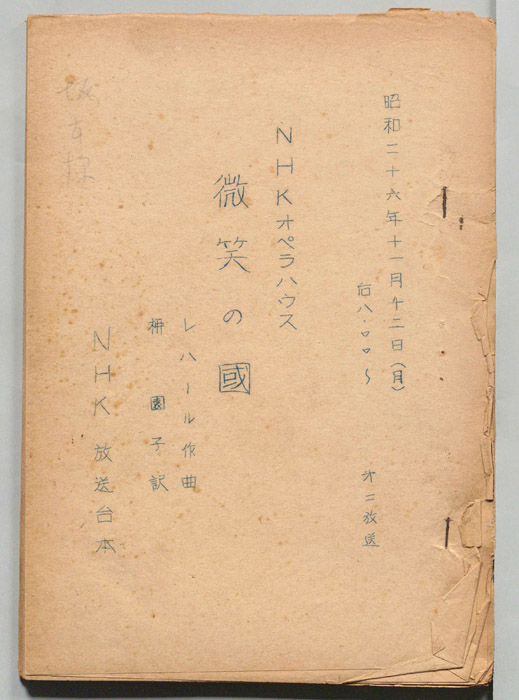 昭和二十六年十一月十二日(月)
后八.〇〇〜
第二放送
NHKオペラハウス
微笑の國
レハール作曲
園子訳
NHK 放送台本